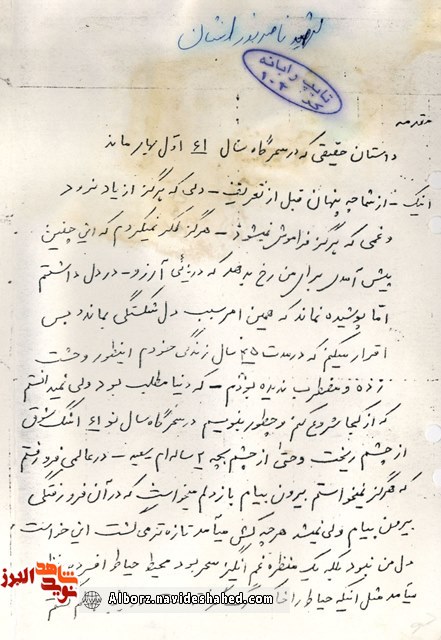 شهید ناصر نورافشان
تایپ رایانه
کد ۱۰۲
مقدمه
داستان حقیقی که در سحرگاه سال ۶۱ اول بهار ماند
اینک - از شما چه پنهان قبل از تعریف - دلی که هرگز از یاد نرود
و غمی که هرگز فراموش نمیشود - هرگز فکر نمیکردم که این چنین
پیش آمدی برای من رخ بدهد که در آرزو - در دل داشتم
اما پوشیده نماند که همین امر سبب دل شکستگی بماند و بس
اقرار میکنم که در مدت ۴۵ سال زندگی خودم اینطور وحشت
زده و مضطرب ندیده بودم - که دنیا مطلب بود ولی نمیدانستم
که از کجا شروع کنم و چطور بنویسم در سحرگاه سال نو ۶۱ اشک شوق
از چشم ریخت و حتی از چشم بچه ۲ ساله ام رسید - در عالمی فرو رفتم
که هرگز نمیخواستم بیرون بیام باز دلم میخواست که در آن فرو رفتگی
بیرون بیام ولی نمیشد هر چه کشی میآمد تازه تر می گشت این خواست
دل من نبود بلکه یک منظره غم انگیز سحر بود محیط حیاط افسرده
میآمد مثل اینکه حیاط را
نوید شاهد البرز
Alborz.navideshahed.com